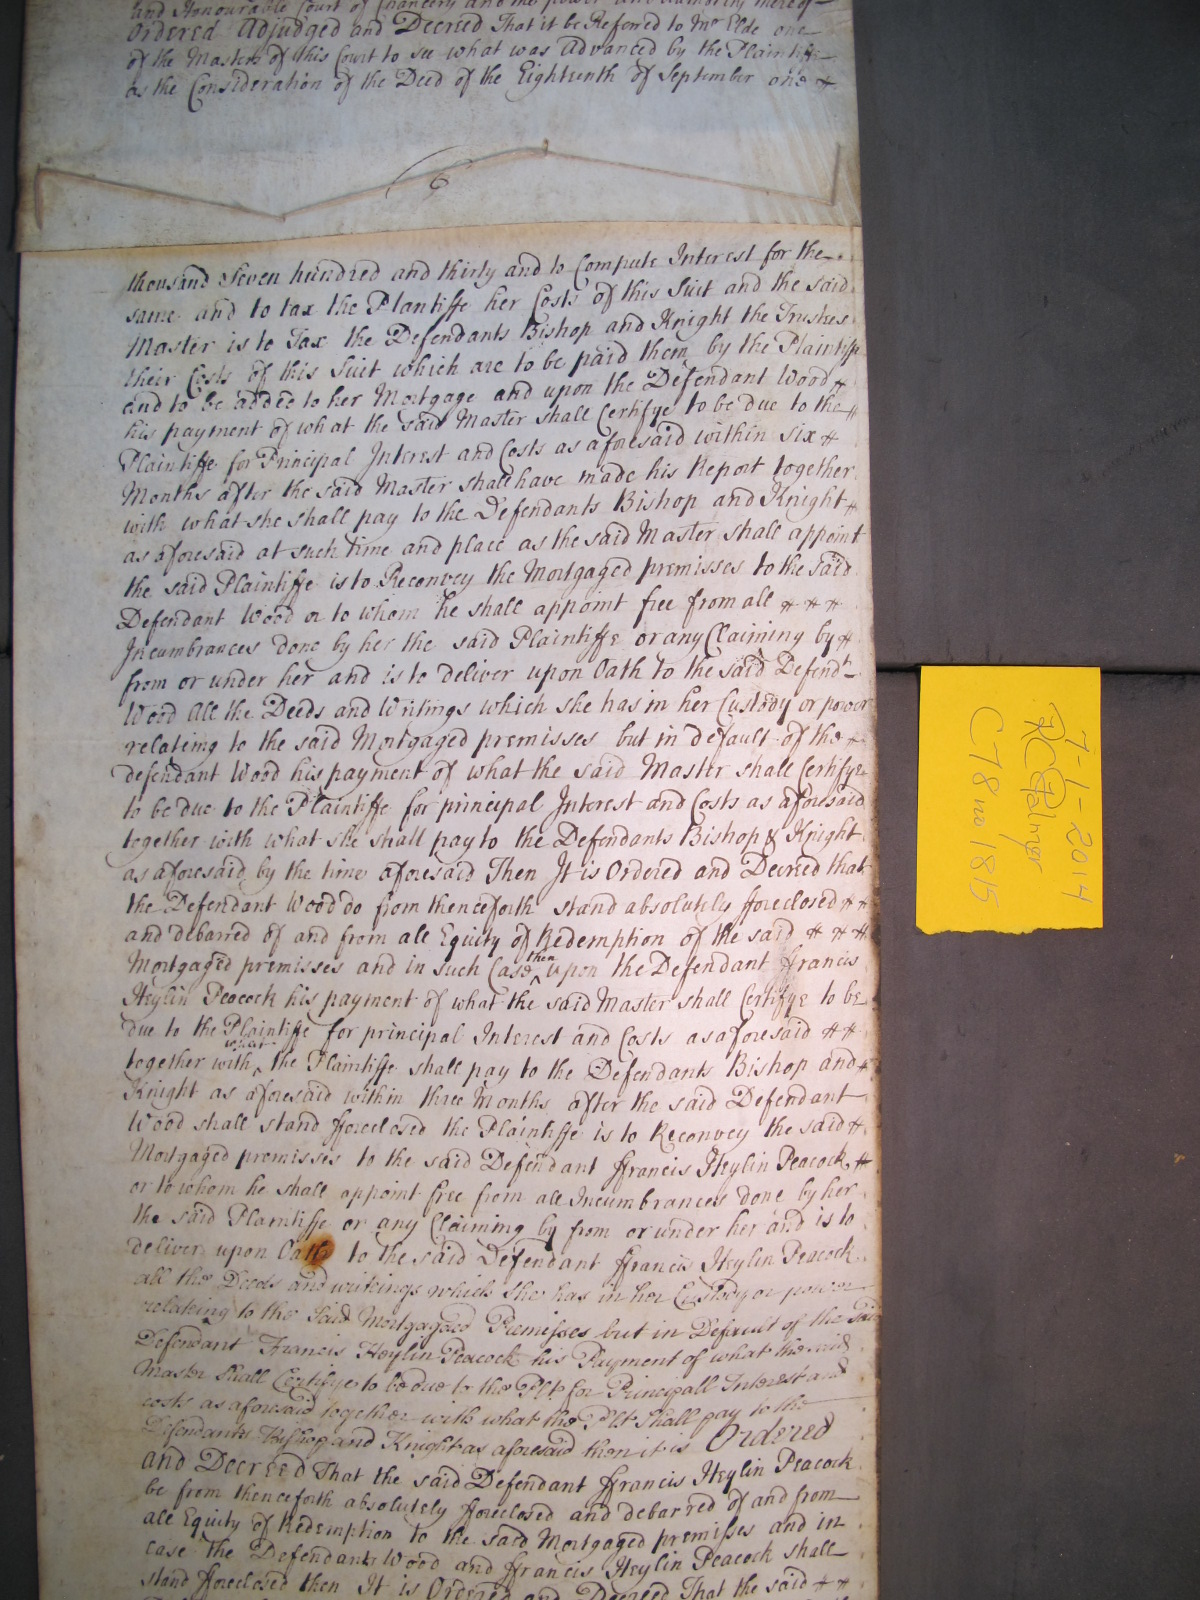 and Honourable Court of Chancery and the power and Authority thereof
Ordered Adjudged and Decreed That it be Referred to Mr Elde one
of the Masters of this Court to see what was Advanced by the Plaintiffe
as the Consideration of the Deed of the Eighteenth of September one
6
thousand Seven hundred and thirty and to Compute Interest for the
same and to tax the Plantiffe her Costs of this Suit and the said
Master is to Tax the Defendants Bishop and Knight the Trustees
their Costs of this Suit which are to be paid them by the Plaintiffe
and to be added to her Mortgage and upon the Defendant Wood
his payment of what the said Master shall Certifye to be due to the
Plaintiffe for Principal Interest and Costs as aforesaid within six
Months after the said Master shall have made his Report together
with what she shall pay to the Defendants Bishop and Knight
as aforesaid at such time and place as the said Master shall appoint
the said Plaintiffe is to Reconvey the Mortgaged premisses to the said
Defendant Wood or to whom he shall appoint free from all
Incumbrances done by her the said Plaintiffe or any Claiming by
from or under her and is to deliver upon Oath to the said Defendt
Wood All the Deeds and Writings which she has in her Custody or power
relating to the said Mortgaged premisses but in default of the
defendant Wood his payment of what the said Master shall Certifye
to be due to the Plaintiffe for principal Interest and Costs as aforesaid
together with what she shall pay to the Defendants Bishop & Knight
as aforesaid by the time aforesaid Then It is Ordered and Decreed that
the Defendant Wood do from thenceforth stand absolutely fforeclosed
and debarred of and from all Equity of Redemption of the said
Mortgaged premisses and in such Case then upon the Defendant ffrancis
Heylin Peacock his payment of what the said Master shall Certifye to be
due to the Plaintiffe for principal Interest and Costs as aforesaid
together with what the Plaintiffe shall pay to the Defendants Bishop and
Knight as aforesaid within three Months after the said Defendant
Wood shall stand fforeclosed the Plaintiffe is to Reconvey the said
Mortgaged premisses to the said Defendant ffrancis Heylin Peacock
or to whom he shall appoint free from all Incumbrances done by her
the said Plaintiffe or any Claiming by from or under her and is to
deliver upon Oath to the said Defendant ffrancis Heylin Peacock
all the Deeds and writings which she has in her Custody or power
relating to the Said Mortgaged Premisses but in Default of the said
Defendant Francis Heylin Peacock his Payment of what the said
Master Shall Certifye to be due to the Plt for Principall Interest and
costs as aforesaid together with what the Plt Shall pay to the
Defendants Bishop and Knight as aforesaid then it is Ordered
and Decreed That the said Defendant ffrancis Heylin Peacock
be from thenceforth absolutely fforeclosed and debarred of and from
all Equity of Redemption to the said Mortgaged premisses and in
case the Defendants Wood and ffrancis Heylin Peacock shall
stand fforeclosed then It is Ordered and Decreed That the said
7-1-2014
RCPalmer
C78 no 1815